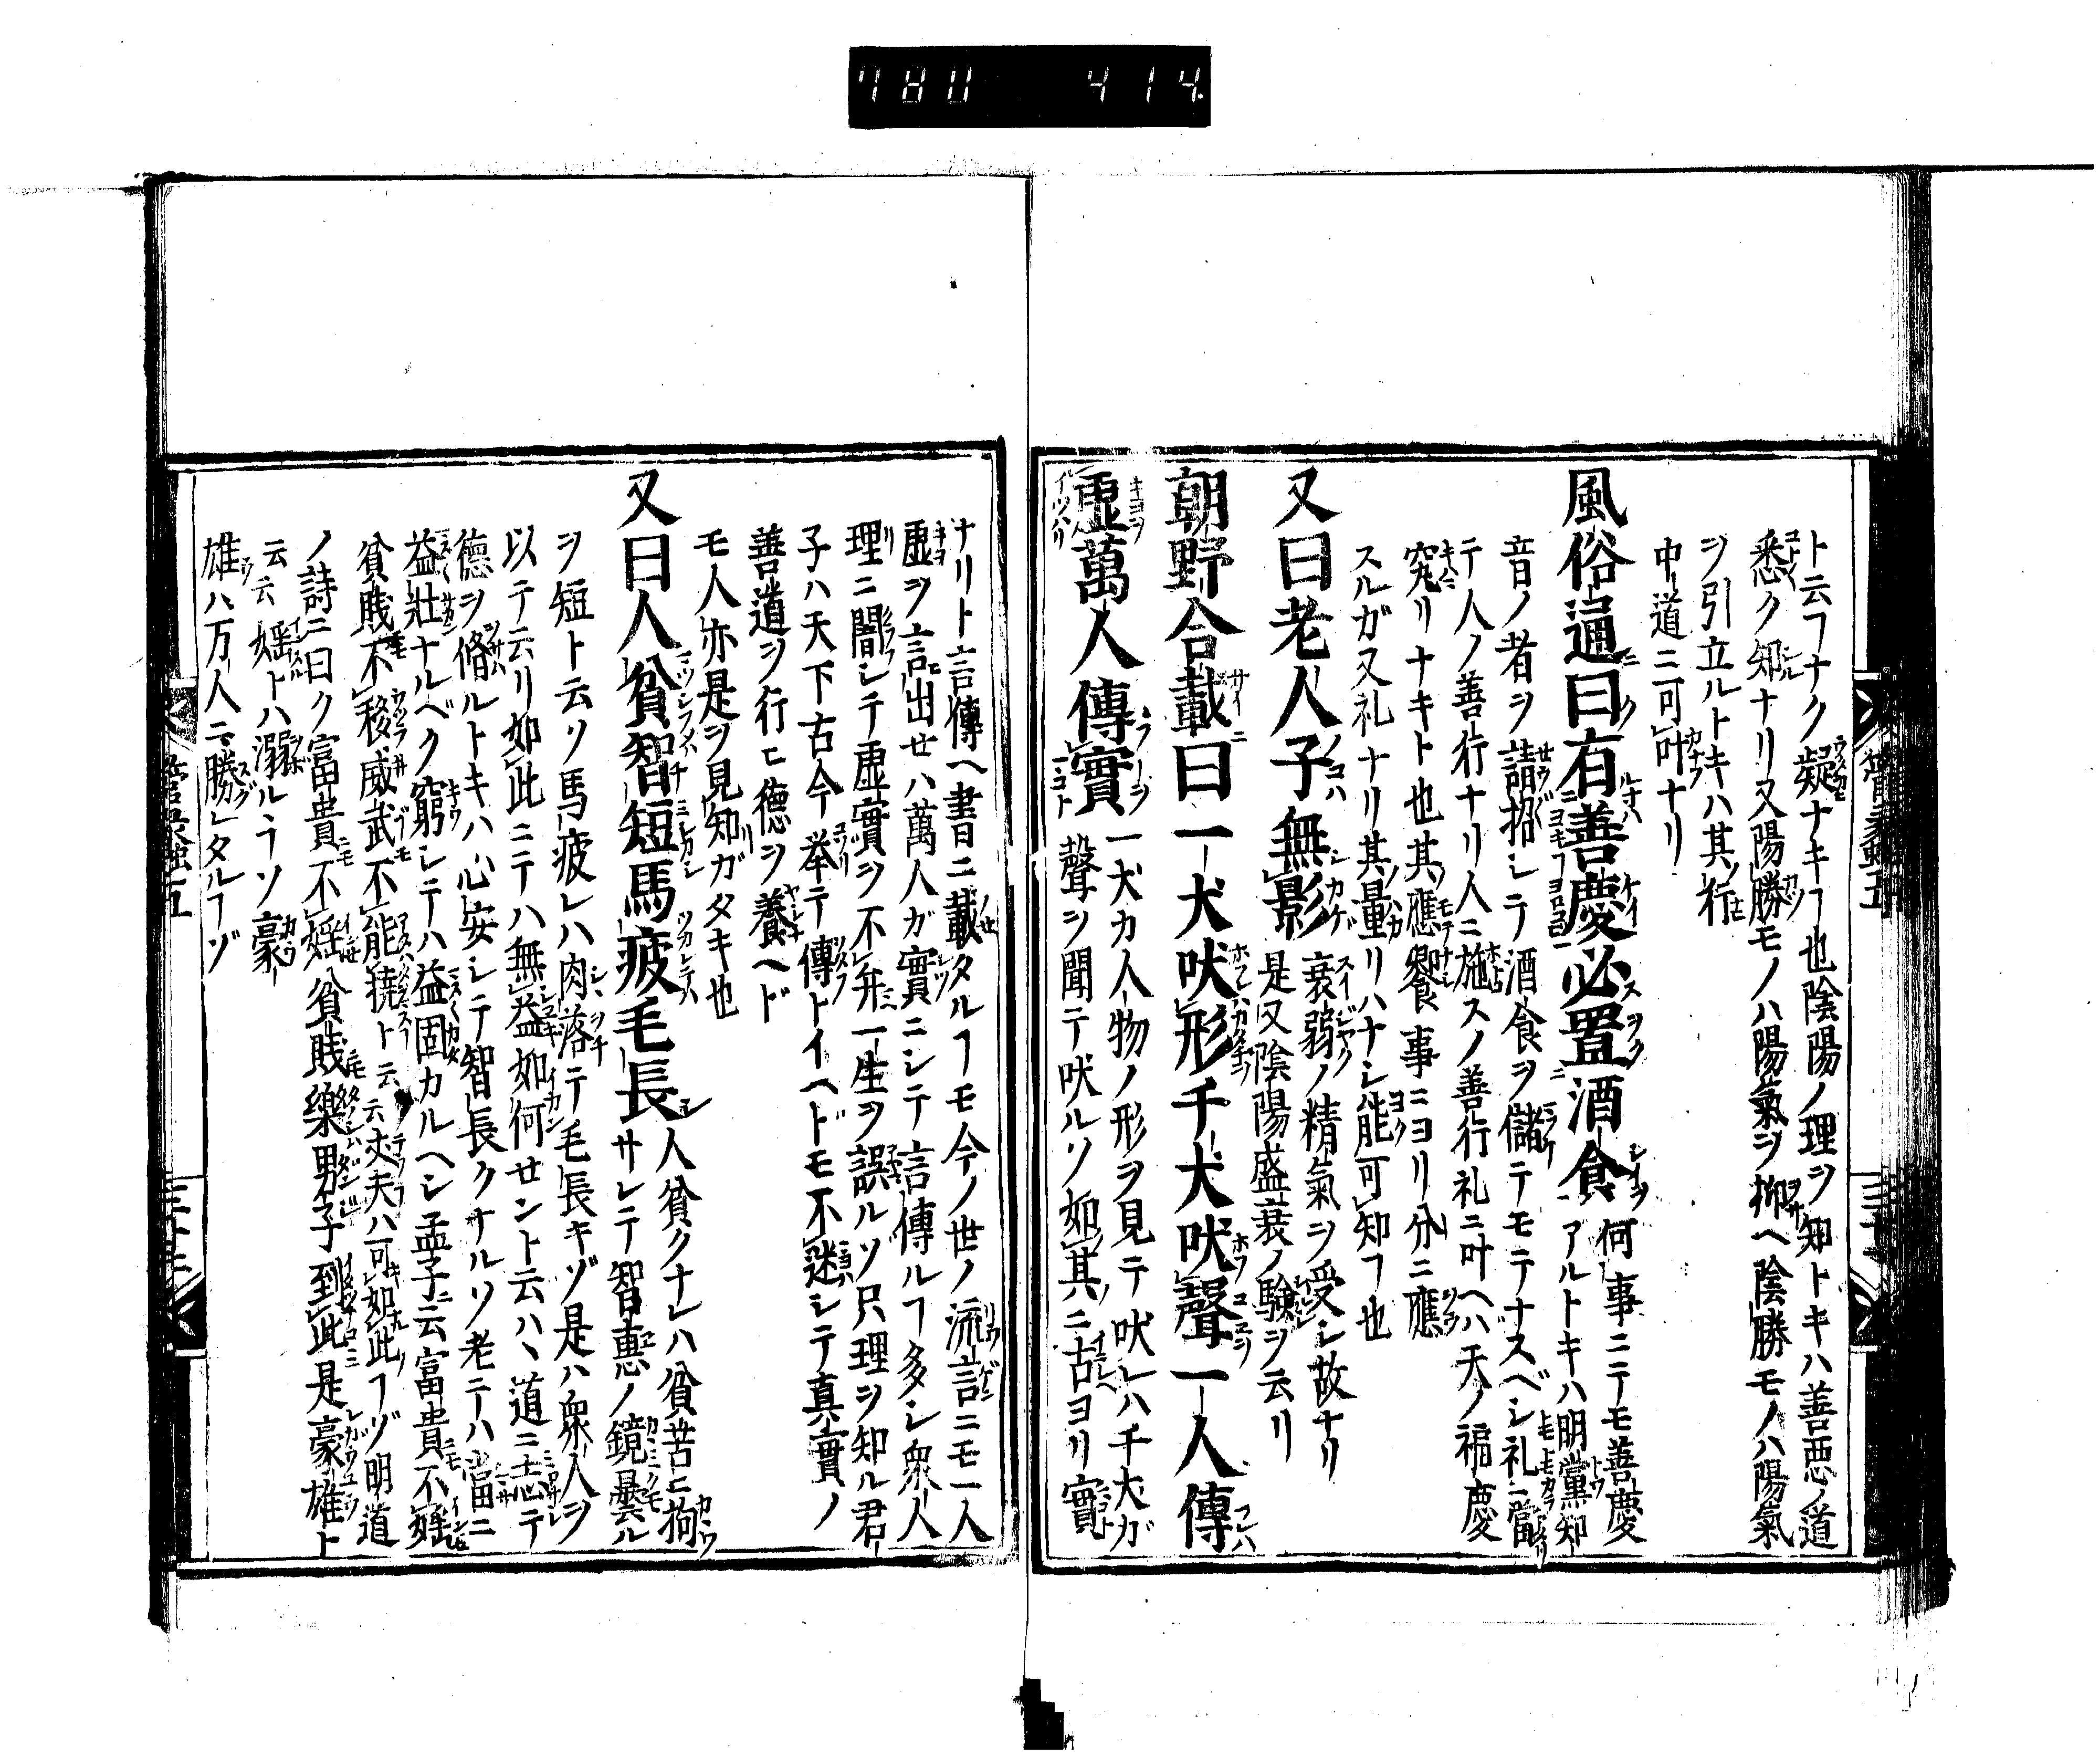 780 414
ト云ヿナク疑ナキヿ也陰陽ノ理ヲ知トキハ善悪ノ道
悉ク知ナリ又陽勝モノハ陽氣ヲ抑ヘ陰勝モノハ陽氣
ヲ引立ルトキハ其行
中道ニ可叶ナリ
風俗通曰有善慶必置酒食 何事ニテモ善慶
アルトキハ明黨知
音ノ者ヲ請招シテ酒食ヲ儲テモテナスベシ礼ニ當
テ人ノ善行ナリ人ニ施スノ善行礼ニ叶ヘハ天ノ福慶
究リナキト也其應餐事ニヨリ分ニ應
スルガ又礼ナリ其量リハナシ能可知ヿ也
又曰老人子無影 衰弱ノ精氣ヲ受シ故ナリ
是又陰陽盛衰ノ驗ヲ云リ
朝野合載曰一犬吠形千犬吠聲一人傳
虛萬人傳實 一犬カ人物ノ形ヲ見テ吠レハ千犬ガ
聲ヲ聞テ吠ルソ如其ニ古ヨリ實
ナリト言傳ヘ書ニ載タルヿモ今ノ世ノ流言ニモ一人
虛ヲ言出セハ萬人ガ實ニシテ言傳ルヿ多シ衆人
理ニ闇シテ虛實ヲ不弁一生ヲ誤ルソ只理ヲ知ル君
子ハ天下古今挙テ傳トイヘドモ不迷シテ真實ノ
善道ヲ行ヒ德ヲ養ヘド
モ人亦是ヲ見知ガタキ也
又曰人貧智短馬疲毛長 人貧クナレハ貧苦ニ拘
サレテ智惠ノ鏡曇ル
ヲ短ト云リ馬疲レハ肉落テ毛長キゾ是ハ衆人ヲ
以テ云リ如此ニテハ無益如何セント云ハヽ道ニ志テ
德ヲ脩ルトキハ心安シテ智長クナルソ老テハ當ニ
益壯ナルベク窮シテハ益固カルヘシ孟子云富貴不婬
貧賎不移威武不能撓ト云云丈夫ハ可如此ヿゾ明道
ノ詩ニ曰ク富貴不婬貧賎樂男子到此是豪雄ト
云云婬トハ溺ルヽソ豪
雄ハ万人ニ勝タルヿゾ